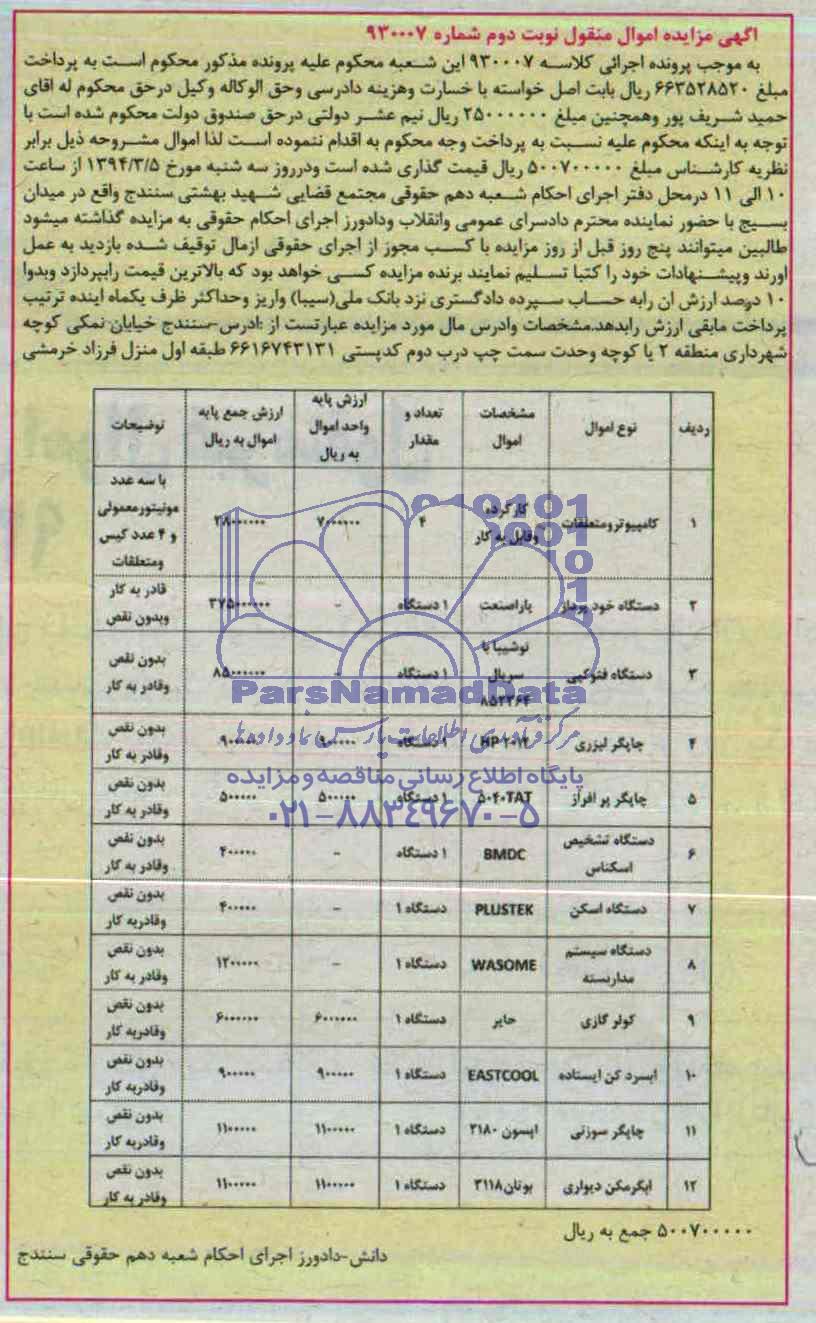 آگهی مزایده اموال منقول نوبت دوم شماره ۹۳۰۰۰۷
به موجب پرونده اجرائی کلاسه ۹۳۰۰۰۷ این شعبه محکوم علیه پرونده مذکور محکوم است به پرداخت
مبلغ ۶۶۳۵۲۸۵۲۰ ریال بابت اصل خواسته با خسارت وهزینه دادرسی وحق الوکاله وکیل درحق محکوم له اقای
حمید شریف پور وهمچنین مبلغ ۲۵۰۰۰۰۰۰ ریال نیم عشر دولتی درحق صندوق دولت محکوم شده است با
توجه به اینکه محکوم علیه نسبت به پرداخت وجه محکوم به اقدام ننموده است لذا اموال مشروحه ذیل برابر
نظریه کارشناس مبلغ ۵۰۰۷۰۰۰۰۰ ریال قیمت گذاری شده است ودرروز سه شنبه مورخ ۱۳۹۴/۳/۵ از ساعت
۱۰ الی ۱۱ درمحل دفتر اجرای احکام شعبه دهم حقوقی مجتمع قضایی شهید بهشتی سنندج واقع در میدان
بسیج با حضور نماینده محترم دادسرای عمومی وانقلاب ودادورز اجرای احکام حقوقی به مزایده گذاشته میشود
طالبین میتوانند پنج روز قبل از روز مزایده با کسب مجوز از اجرای حقوقی ازمال توقیف شده بازدید به عمل
اورند وپیشنهادات خود را کتبا تسلیم نمایند برنده مزایده کسی خواهد بود که بالاترین قیمت رابپردازد وبدوا
۱۰ درصد ارزش ان رابه حساب سپرده دادگستری نزد بانک ملی(سیبا) واریز وحداکثر ظرف یکماه اینده ترتیب
پرداخت مابقی ارزش رابدهد.مشخصات وادرس مال مورد مزایده عبارتست از :ادرس-سنندج خیابان نمکی کوچه
شهرداری منطقه ۲ یا کوچه وحدت سمت چپ درب دوم کدپستی ۶۶۱۶۷۴۳۱۳۱ طبقه اول منزل فرزاد خرمشی
ردیف نوع اموال مشخصات اموال تعداد و مقدار ارزش پایه واحد اموال به ریال ارزش جمع پایه اموال به ریال توضیحات
۱ کامپیوترومتعلقات کارکرده وقابل به کار ۴ ۷۰۰۰۰۰۰ ۲۸۰۰۰۰۰۰ با سه عدد مونیتورمعمولی و ۴ عدد کیس ومتعلقات
۲ دستگاه خود پرداز یاراصنعت ۱ دستگاه - ۳۷۵۰۰۰۰۰۰ قادر به کار وبدون نقص
۳ دستگاه فتوکپی توشیبا با سریال ۸۵۲۳۶۴ ۱ دستگاه - ۸۵۰۰۰۰۰۰ بدون نقص وقادر به کار
۴ چاپگر لیزری HP ۱ دستگاه ۹۰۰۰۰۰ ۹۰۰۰۰۰ بدون نقص وقادر به کار
۵ چاپگر پر افراز ۵۰۴۰TAT ۱ دستگاه ۵۰۰۰۰۰ ۵۰۰۰۰۰ بدون نقص وقادر به کار
۶ دستگاه تشخیص اسکناس BMDC ۱ دستگاه - ۴۰۰۰۰۰ بدون نقص وقادر به کار
۷ دستگاه اسکن PLUSTEK دستگاه ۱ - ۴۰۰۰۰۰ بدون نقص وقادربه کار
۸ دستگاه سیستم مداربسته WASOME دستگاه ۱ - ۱۲۰۰۰۰۰ بدون نقص وقادر به کار
۹ کولر گازی حایر دستگاه ۱ ۶۰۰۰۰۰۰ ۶۰۰۰۰۰۰ بدون نقص وقادربه کار
۱۰ ابسرد کن ایستاده EASTCOOL دستگاه ۱ ۹۰۰۰۰۰ ۹۰۰۰۰۰ بدون نقص وقادربه کار
۱۱ چاپگر سوزنی اپسون ۲۱۸۰ دستگاه ۱ ۱۱۰۰۰۰۰ ۱۱۰۰۰۰۰ بدون نقص وقادربه کار
۱۲ ابگرمکن دیواری بوتان۳۱۱۸ دستگاه ۱ ۱۱۰۰۰۰۰ ۱۱۰۰۰۰۰ بدون نقص وقادر به کار
ParsNamadData
مرکز فرآوری اطلاعات پارس نماد داده‌ها
پایگاه اطلاع رسانی مناقصه و مزایده
۰۲۱-۸۸۳۴۹۶۷۰-۵
۵۰۰۷۰۰۰۰۰ جمع به ریال
دانش-دادورز اجرای احکام شعبه دهم حقوقی سنندج